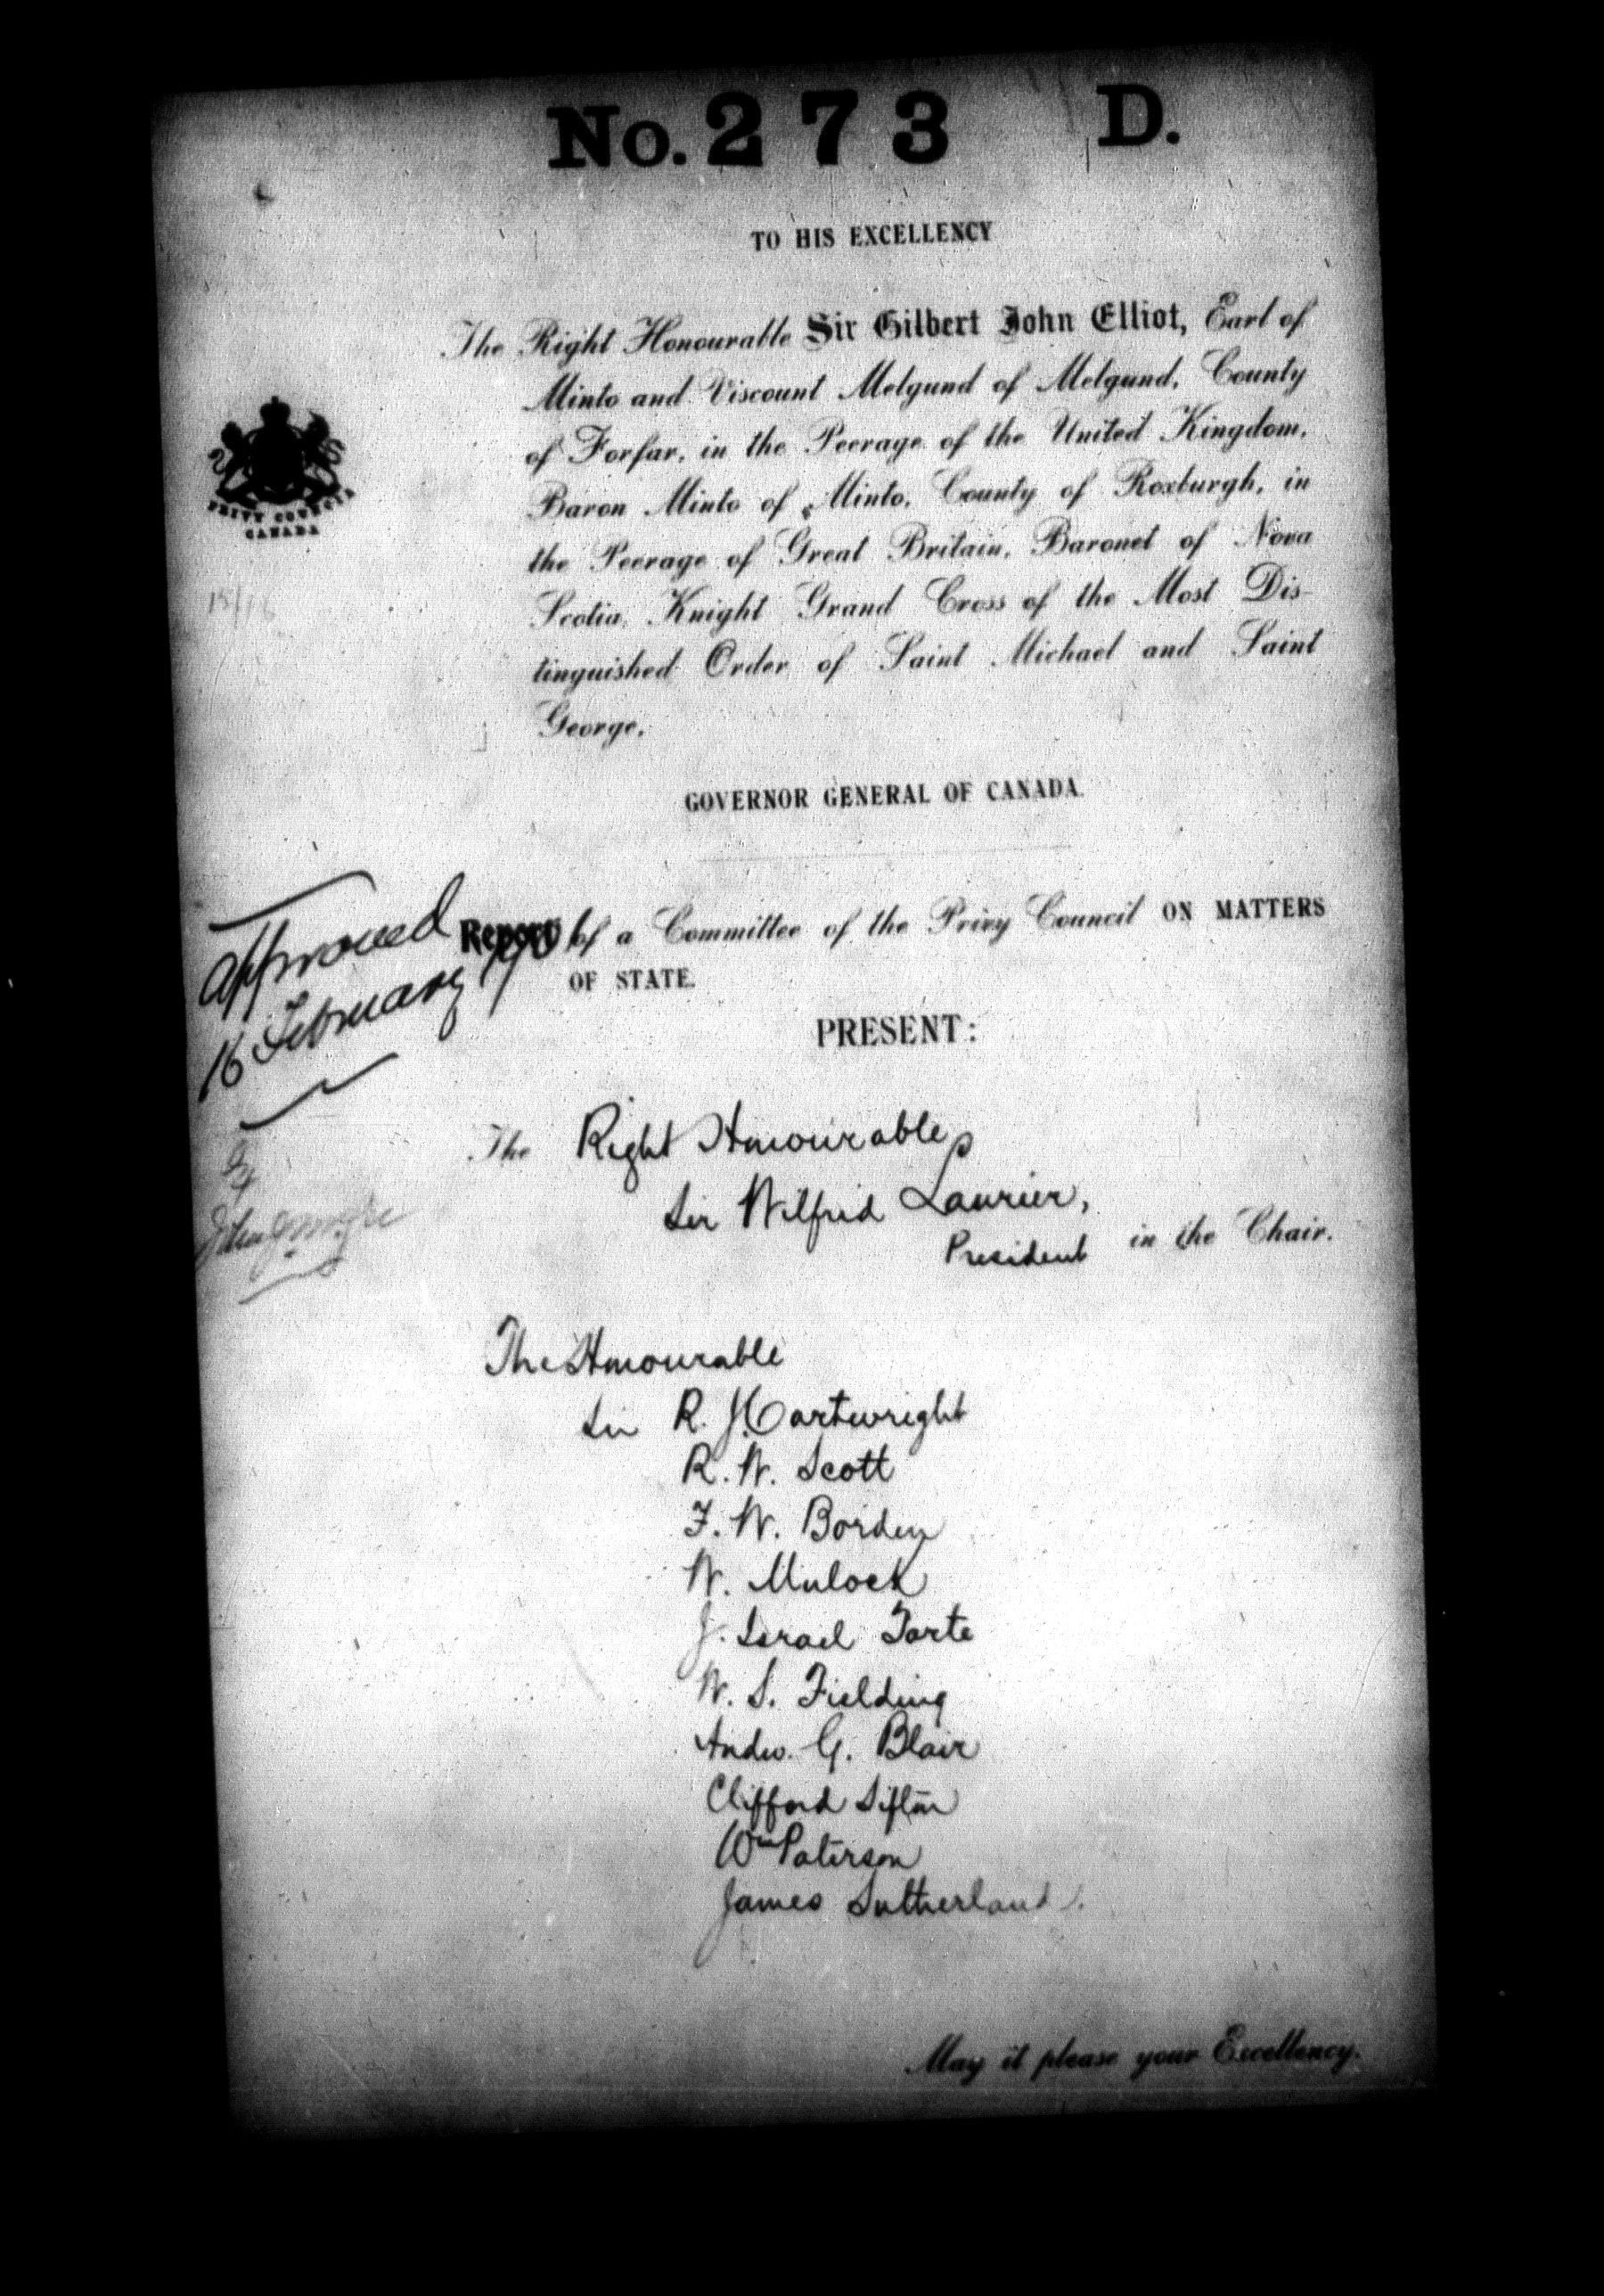 No. 273 D.
TO HIS EXCELLENCY
The Right Honourable Sir Gilbert John Elliot, Earl of
Minto and Viscount Melgund of Melgund, County
of Forfar, in the Peerage of the United Kingdom,
Baron Minto of Minto, County of Roxburgh, in
the Peerage of Great Britain, Baronet of Nova
Scotia, Knight Grand Cross of the Most Dis-
tinguished Order of Saint Michael and Saint
George,
PRIVY COUNCIL
CANADA
15/16
GOVERNOR GENERAL OF CANADA.
Report of a Committee of the Privy Council ON MATTERS
OF STATE.
Approved
16 February
PRESENT:
The Right Honourable
Sir Wilfrid Laurier,
President in the Chair.
The Honourable
Sir R. J. Cartwright
R. W. Scott
F. W. Borden
W. Mulock
J. Israel Tarte
W. S. Fielding
Andw. G. Blair
Clifford Sifton
Wm Paterson
James Sutherland.
May it please your Excellency.